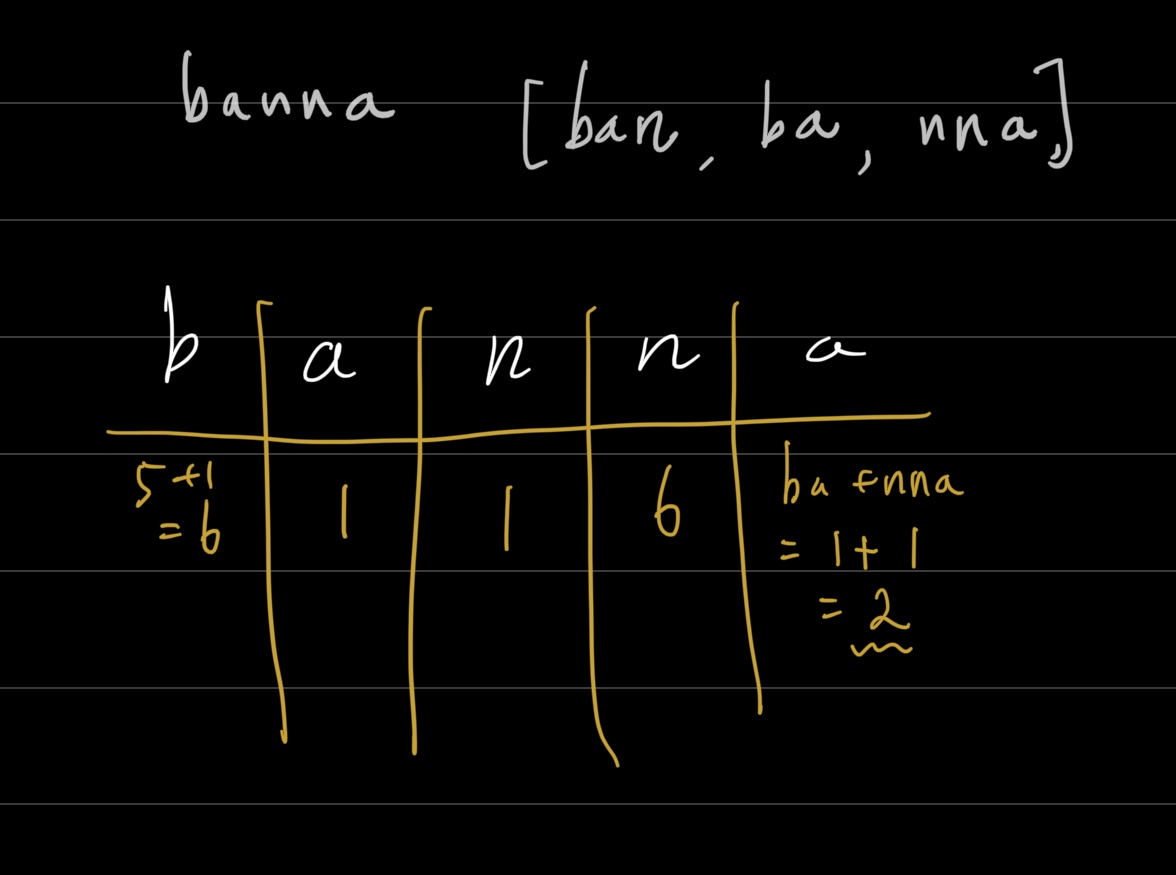 banna [ban, ba, nna]
b a n n a
5+1 = 6
1
1
6
ba + nna
= 1 + 1
= 2